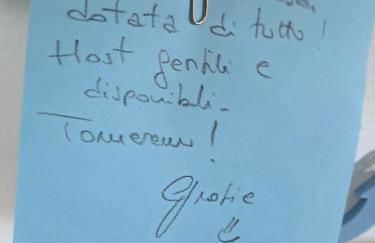 dotata di tutto!
Host gentili e
disponibili.
Torneremo!
Grazie